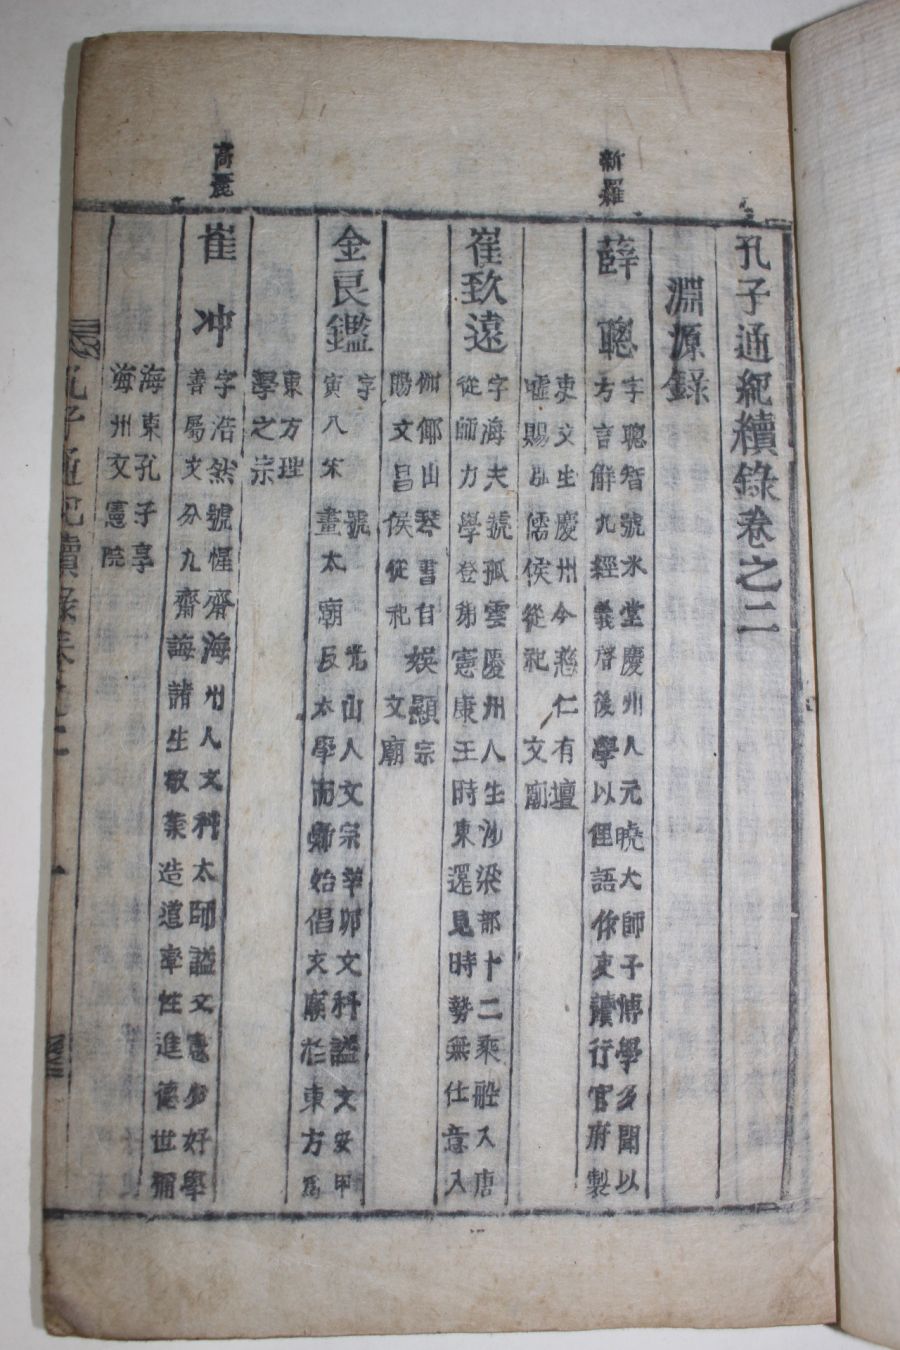 孔子通紀續錄卷之二
淵源錄
新羅
薛聰
字聰智號氷堂慶州人元曉大師子博學多聞以
方言解九經義啓後學以俚語作吏讀行官府製
吏文生慶州今慈仁有壇
贈弘儒侯從祀文廟
崔致遠
字海夫號孤雲慶州人生沙梁部十二乘船入唐
從師力學登第憲康王時東還見時勢無仕意入
伽倻山琴書自娛顯宗
文昌侯從祀文廟
金良鑑
字號光山人文宗辛卯文科謚文安甲
寅入宋畫太廟及太學而歸始倡文廟於東方爲
東方理
學之宗
高麗
崔冲
字浩然號惺齋海州人文科太師謚文憲少好學
善屬文分九齋誨諸生敬業造道率性進德世稱
海東孔子享
海州文憲院
孔子通紀續錄卷之二
一